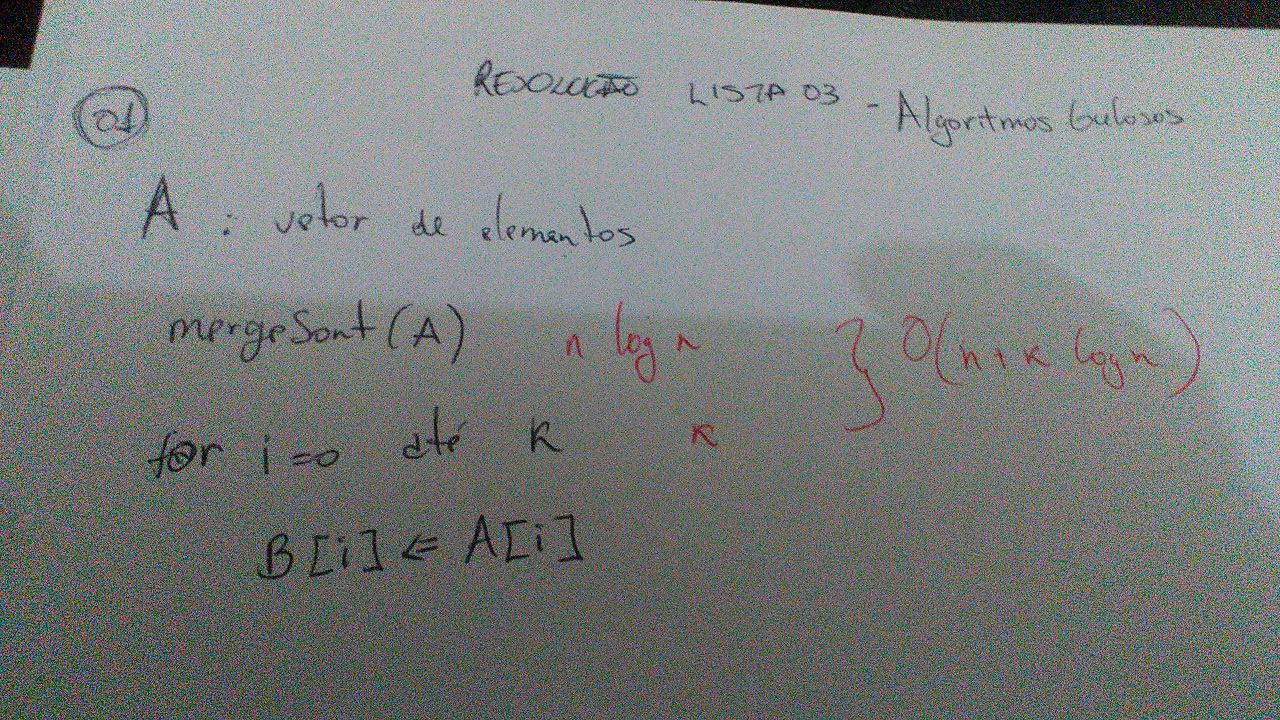 RESOLUÇÃO LISTA 03 - Algoritmos Gulosos
01
A : vetor de elementos
mergeSort(A) n log n } O(n + k log n)
for i=0 até K K
B[i] ⇐ A[i]